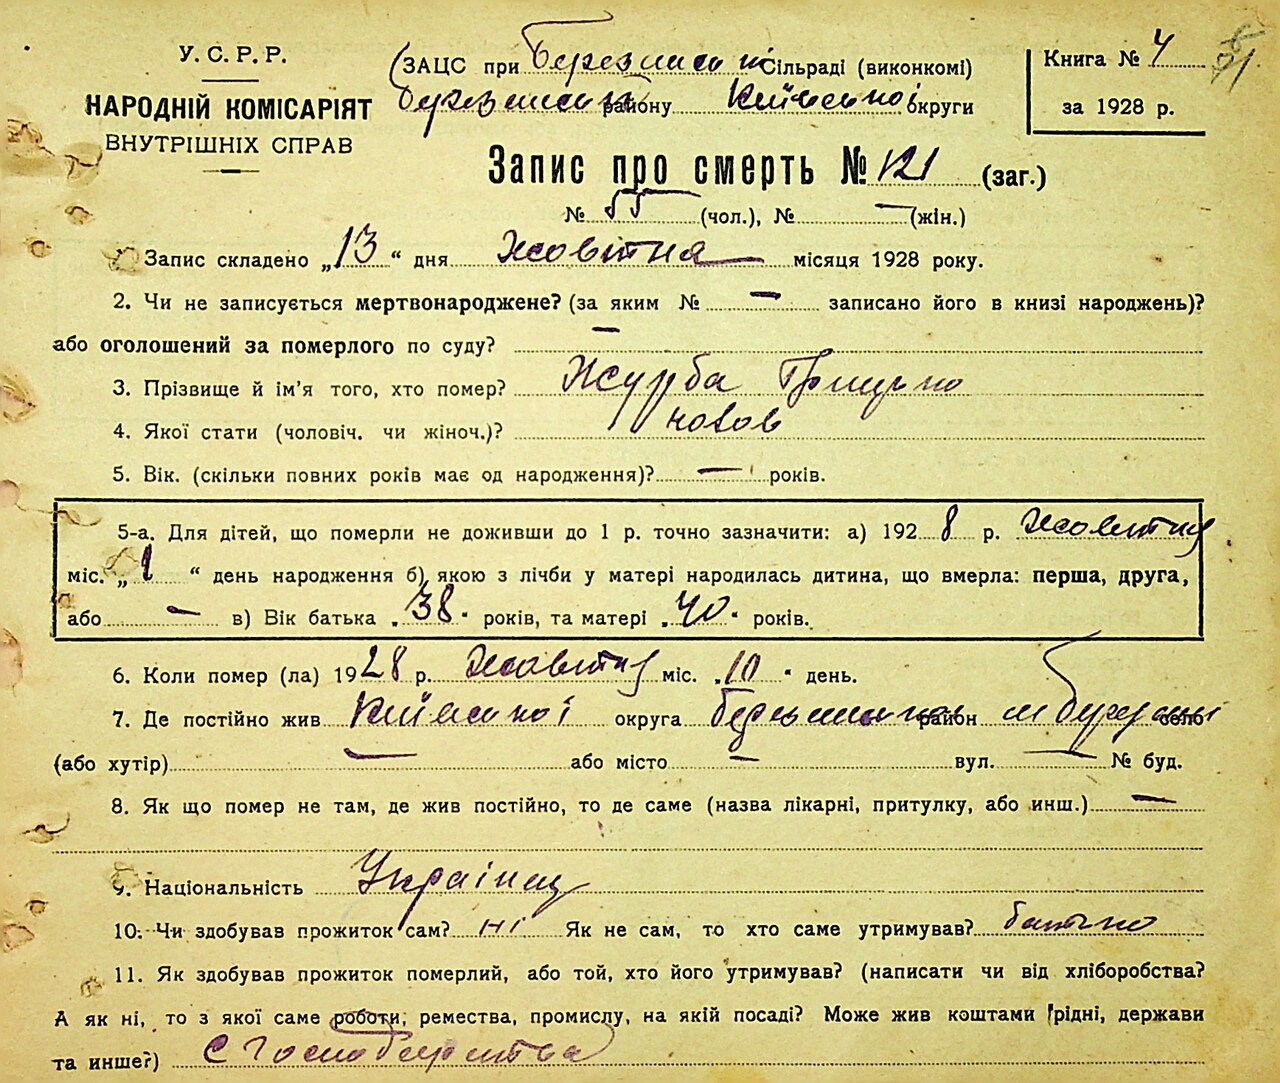 У. С. Р. Р.
НАРОДНІЙ КОМІСАРІЯТ
ВНУТРІШНІХ СПРАВ
(ЗАЦС при Сільраді (виконкомі)
району Київської округи
Книга № 4
за 1928 р.
91
Запис про смерть № 121 (заг.)
№ 55 (чол.), № — (жін.)
1. Запис складено „13“ дня Жовтня місяця 1928 року.
2. Чи не записується мертвонароджене? (за яким № — записано його в книзі народжень)?
або оголошений за померлого по суду? —
3. Прізвище й ім'я того, хто помер? Журба Грицько
4. Якої стати (чоловіч. чи жіноч.)? чолов
5. Вік. (скільки повних років має од народження)? — років.
5-а. Для дітей, що померли не доживши до 1 р. точно зазначити: а) 1928 р. Жовтня
міс. „1“ день народження б) якою з лічби у матері народилась дитина, що вмерла: перша, друга,
або — в) Вік батька „38“ років, та матері „40“ років.
6. Коли помер (ла) 1928 р. Жовтня міс. „10“ день.
7. Де постійно жив Київської округа район м село
(або хутір) — або місто — вул. — № буд.
8. Як що помер не там, де жив постійно, то де саме (назва лікарні, притулку, або инш.) —
9. Національність Українец
10. Чи здобував прожиток сам? ні Як не сам, то хто саме утримував? батько
11. Як здобував прожиток померлий, або той, хто його утримував? (написати чи від хліборобства?
А як ні, то з якої саме роботи, ремества, промислу, на якій посаді? Може жив коштами рідні, держави
та инше?) с господарства